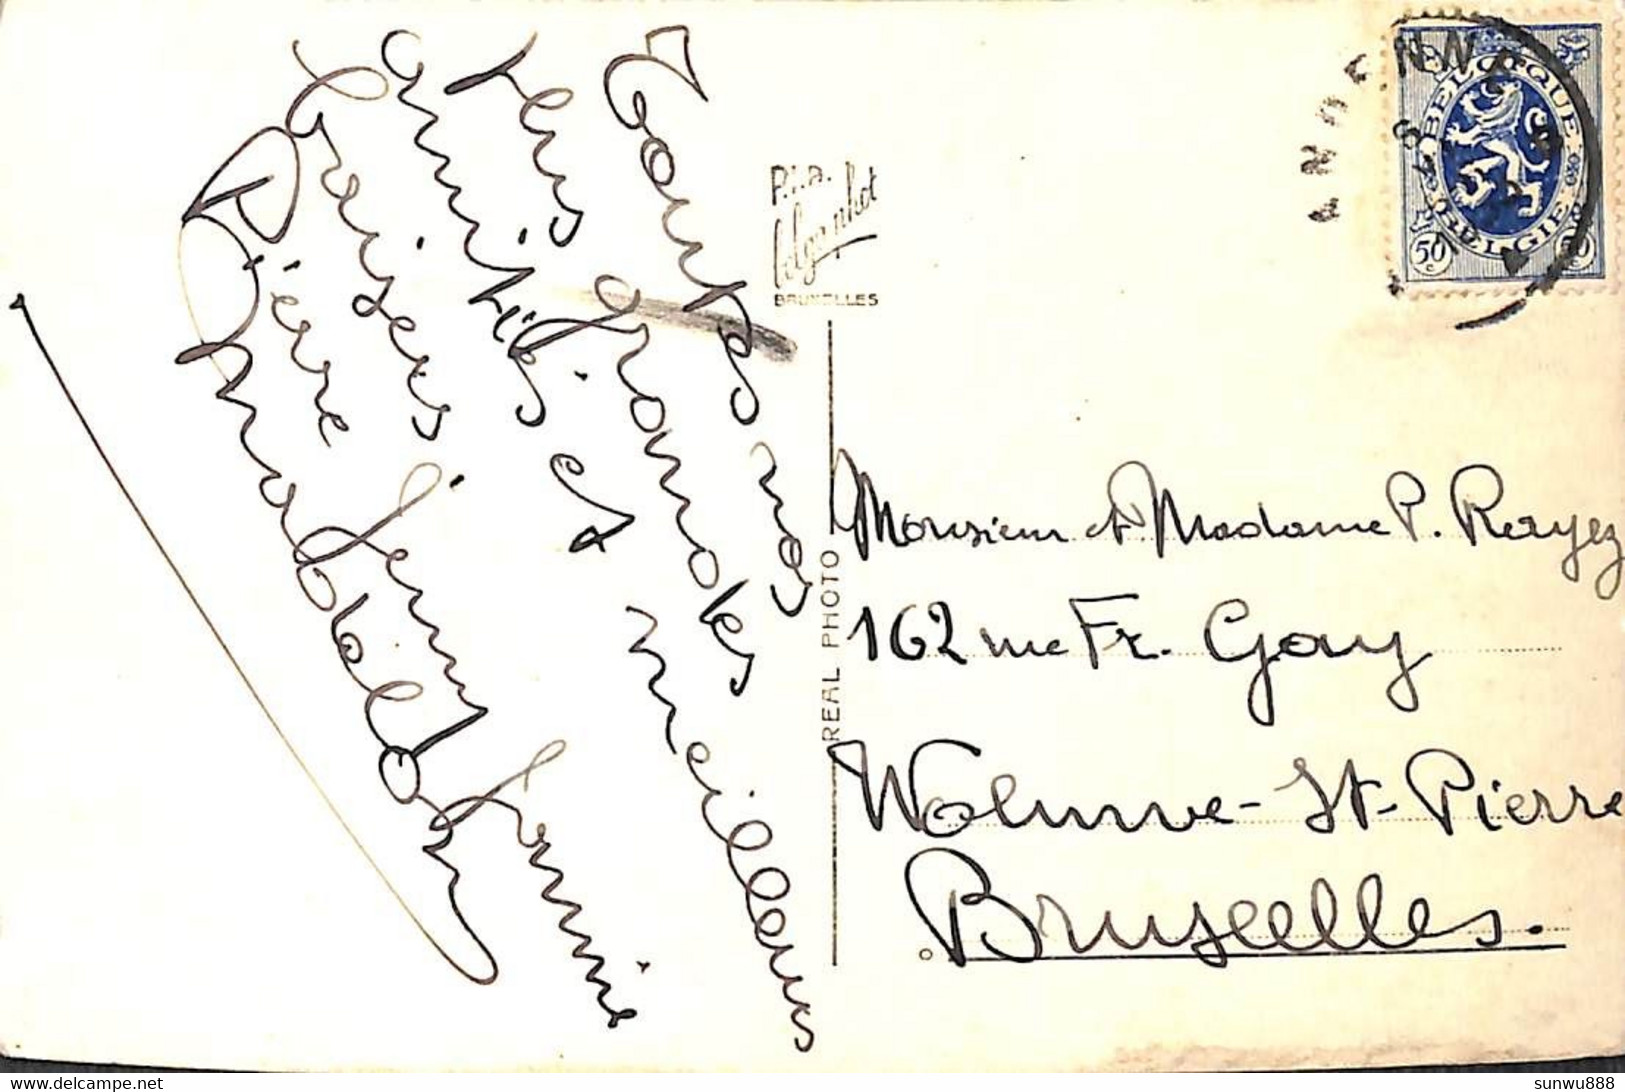 Toutes nos
plus grandes
amitiés et meilleurs
baisers
Pierre Jenny Francine
P.I.B.
Belgaphot
BRUXELLES
REAL PHOTO
ANDENNE
BELGIQUE
BELGIE
50c
Monsieur et Madame P. Rayez
162 rue Fr. Gay
Woluwe-St-Pierre
Bruxelles.
delcampe.net
sunwu888